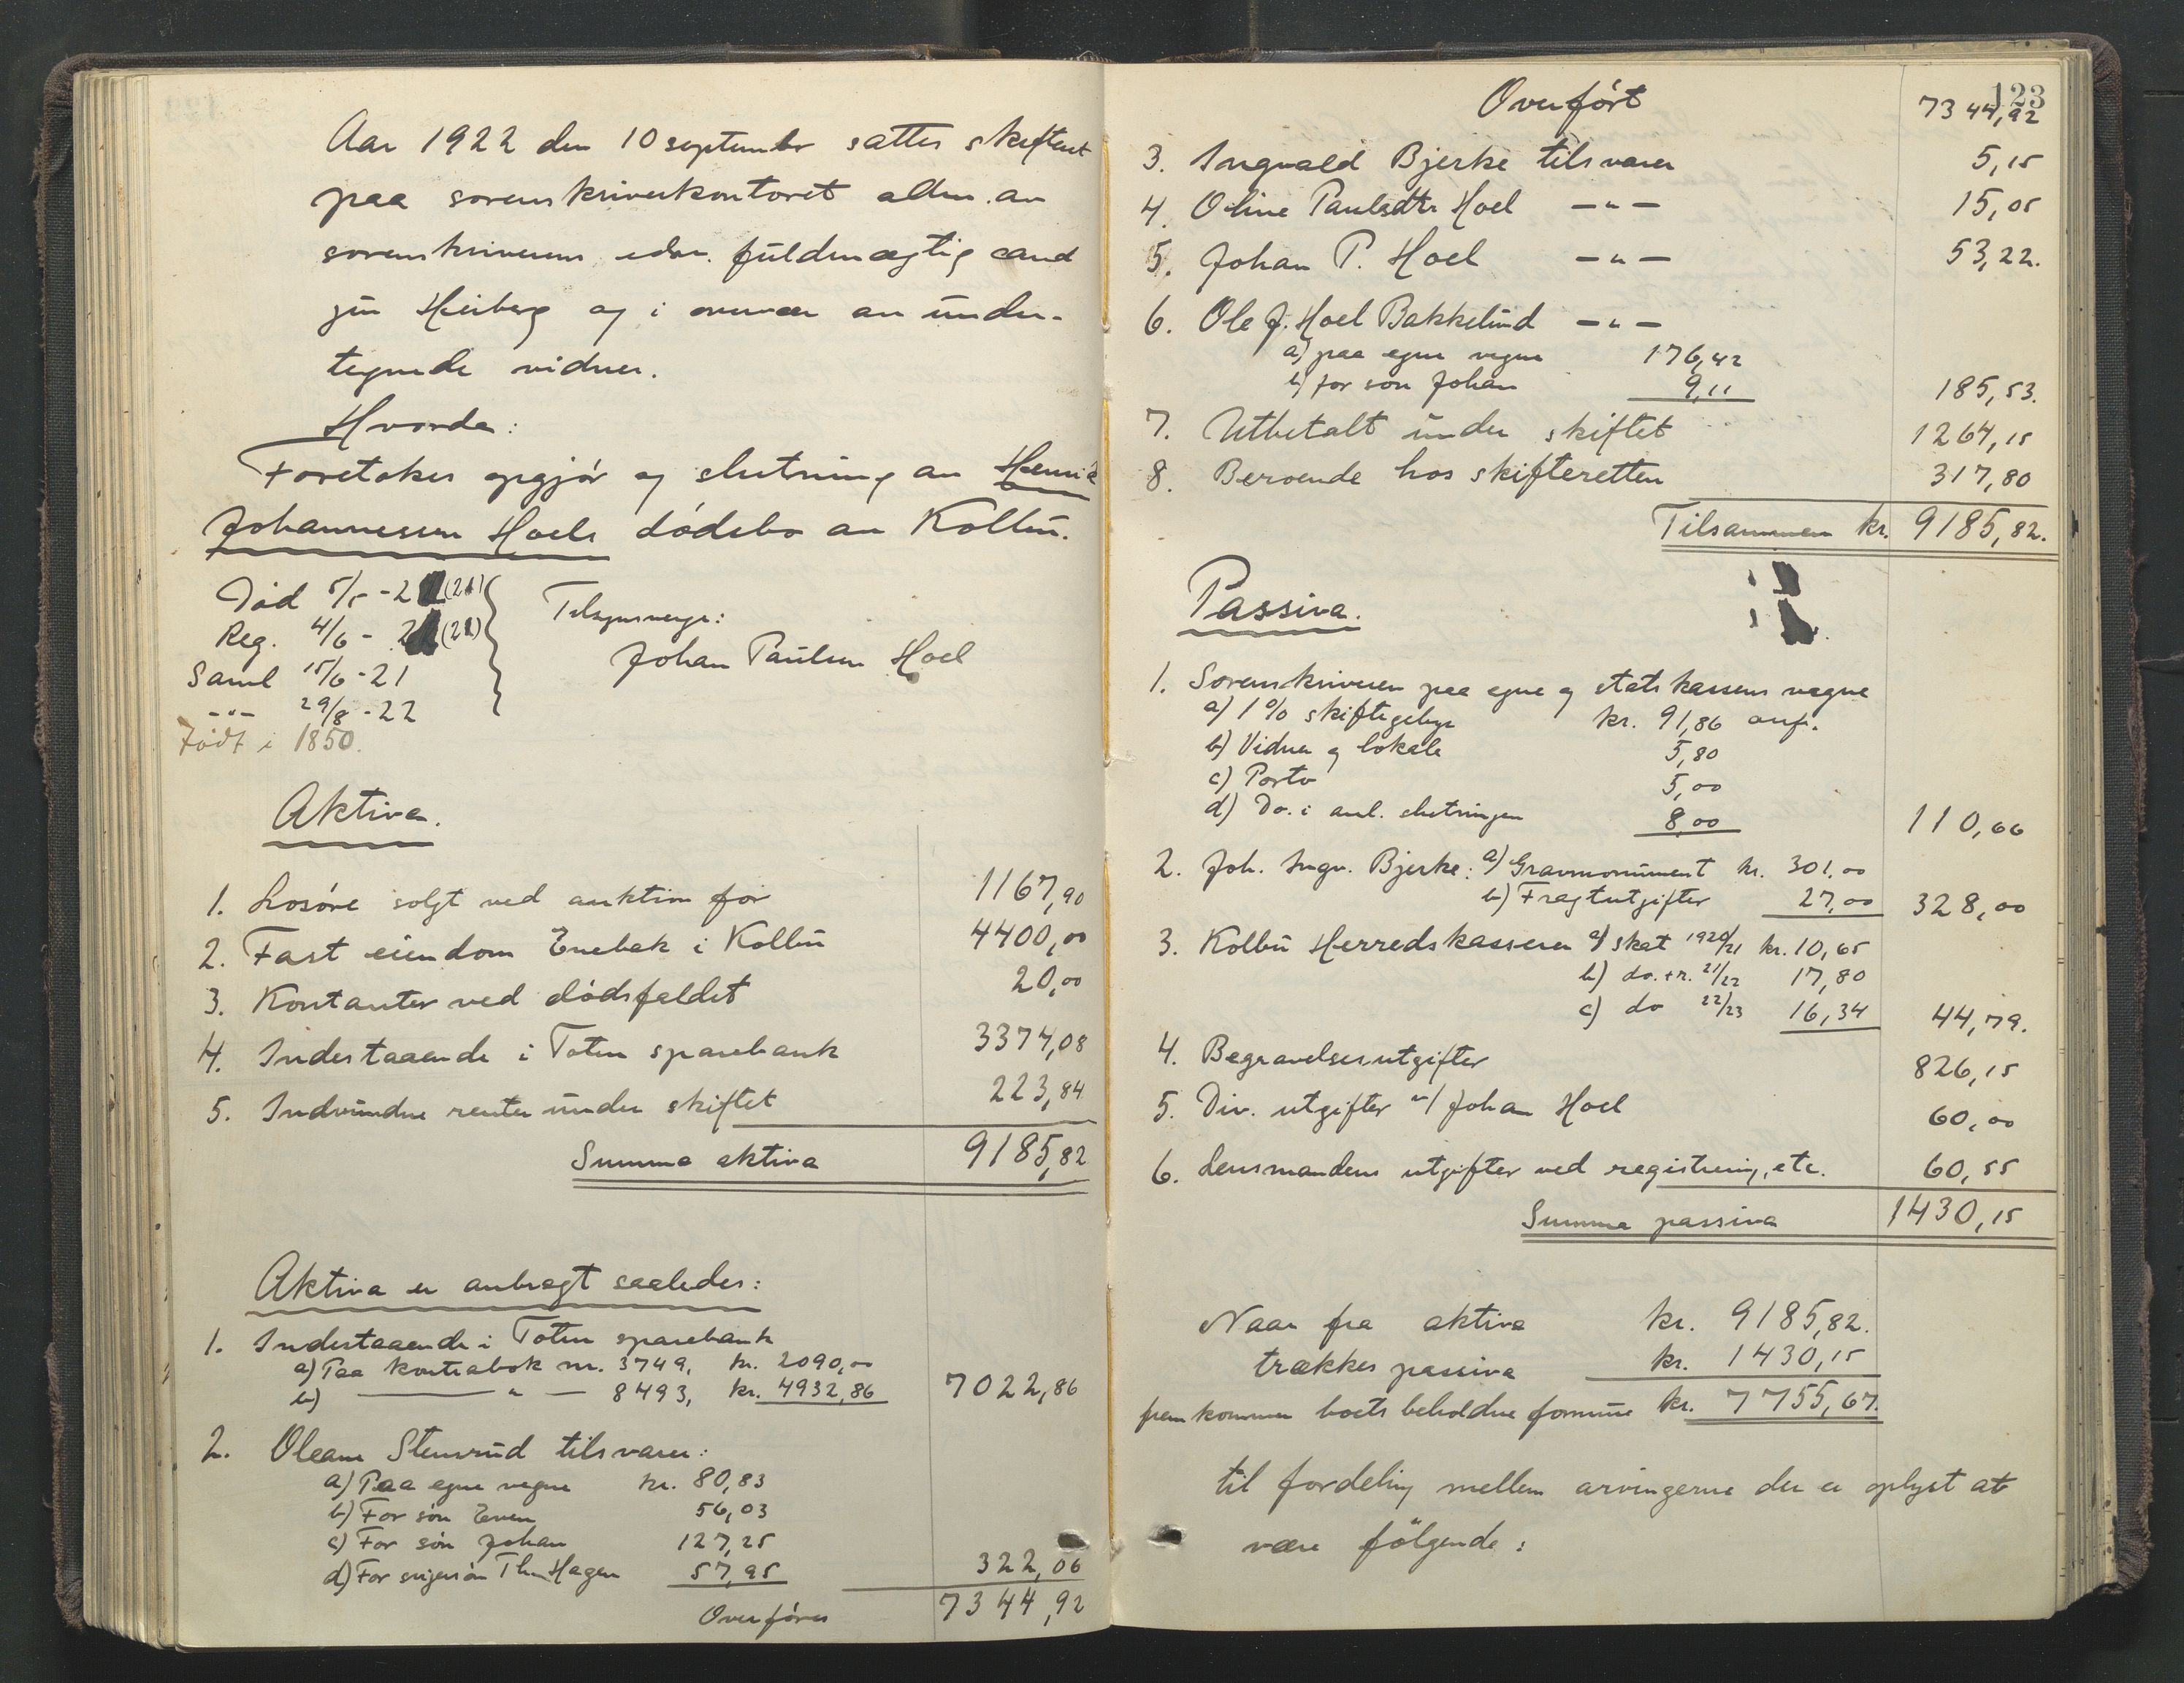 Aar 1922 den 10 september sattes skifteret
paa sorenskriverkontoret adm. av
sorenskriverens edsv. fuldmægtig cand
jur Heiberg og i overvær av under-
tegnede vidner.
Hvorda:
Foretokes opgjör og slutning av Henrik
Johannessen Hoels dödsbo av Kolbu.
Död 5/5 - 21 (21)
Reg. 4/6 - 21 (21)
Saml 15/6 - 21
-"- 29/8 - 22
Födt i 1850.
Tilsynsverge:
Johan Paulsen Hoel
Aktiva.
1. Losöre solgt ved auktion for 1167,90
2. Fast eiendom Enebak i Kolbu 4400,00
3. Kontanter ved dödsfaldet 20,00
4. Indestaaende i Toten sparebank 3374,08
5. Indvundne renter under skiftet 223,84
Summa aktiva 9185,82
Aktiva er anbragt saaledes:
1. Indestaaende i Toten sparebank
a) Paa kontrabok nr. 3749, kr. 2090,00
b) — " — 8493, kr. 4932,86 7022,86
2. Oleane Stensrud tilsvarer:
a) Paa egne vegne kr. 80,83
b) For sön Even 56,03
c) For sön Johan 127,25
d) For svigersön Th. Hagen 57,95 322,06
Overföres 7344,92
123
Overfört 7344,92
3. Ingvald Bjerke tilsvarer 5,15
4. Oline Paulsdtr Hoel —"— 15,05
5. Johan P. Hoel —"— 53,22.
6. Ole J. Hoel Bakkelund —"—
a) paa egne vegne 176,42
b) for sön Johan 9,11 185,53.
7. Utbetalt under skiftet 1264,15
8. Beroende hos skifteretten 317,80
Tilsammen kr. 9185,82.
Passiva.
1. Sorenskriveren paa egne og statskassens vegne
a) 1% skiftegebyr kr. 91,86
b) Vidner og lokale 5,80
c) Porto 5,00
d) Do. i anl. slutningen 8,00 110,66
2. Joh. Ingv. Bjerke: a) Gravmonument kr. 301,00
b) Fragtutgifter 27,00 328,00
3. Kolbu Herredskasserer a) skat 1920/21 kr. 10,65
b) do. + r. 21/22 17,80
c) do 22/23 16,34 44,79.
4. Begravelsesutgifter 826,15
5. Div. utgifter v/ Johan Hoel 60,00
6. Lensmandens utgifter ved registrering, etc. 60,55
Summa passiva 1430,15
Naar fra aktiva kr. 9185,82.
trækkes passiva kr. 1430,15
fremkommer boets beholdne formue kr. 7755,67.
til fordeling mellem arvingerne der er oplyst at
være fölgende: